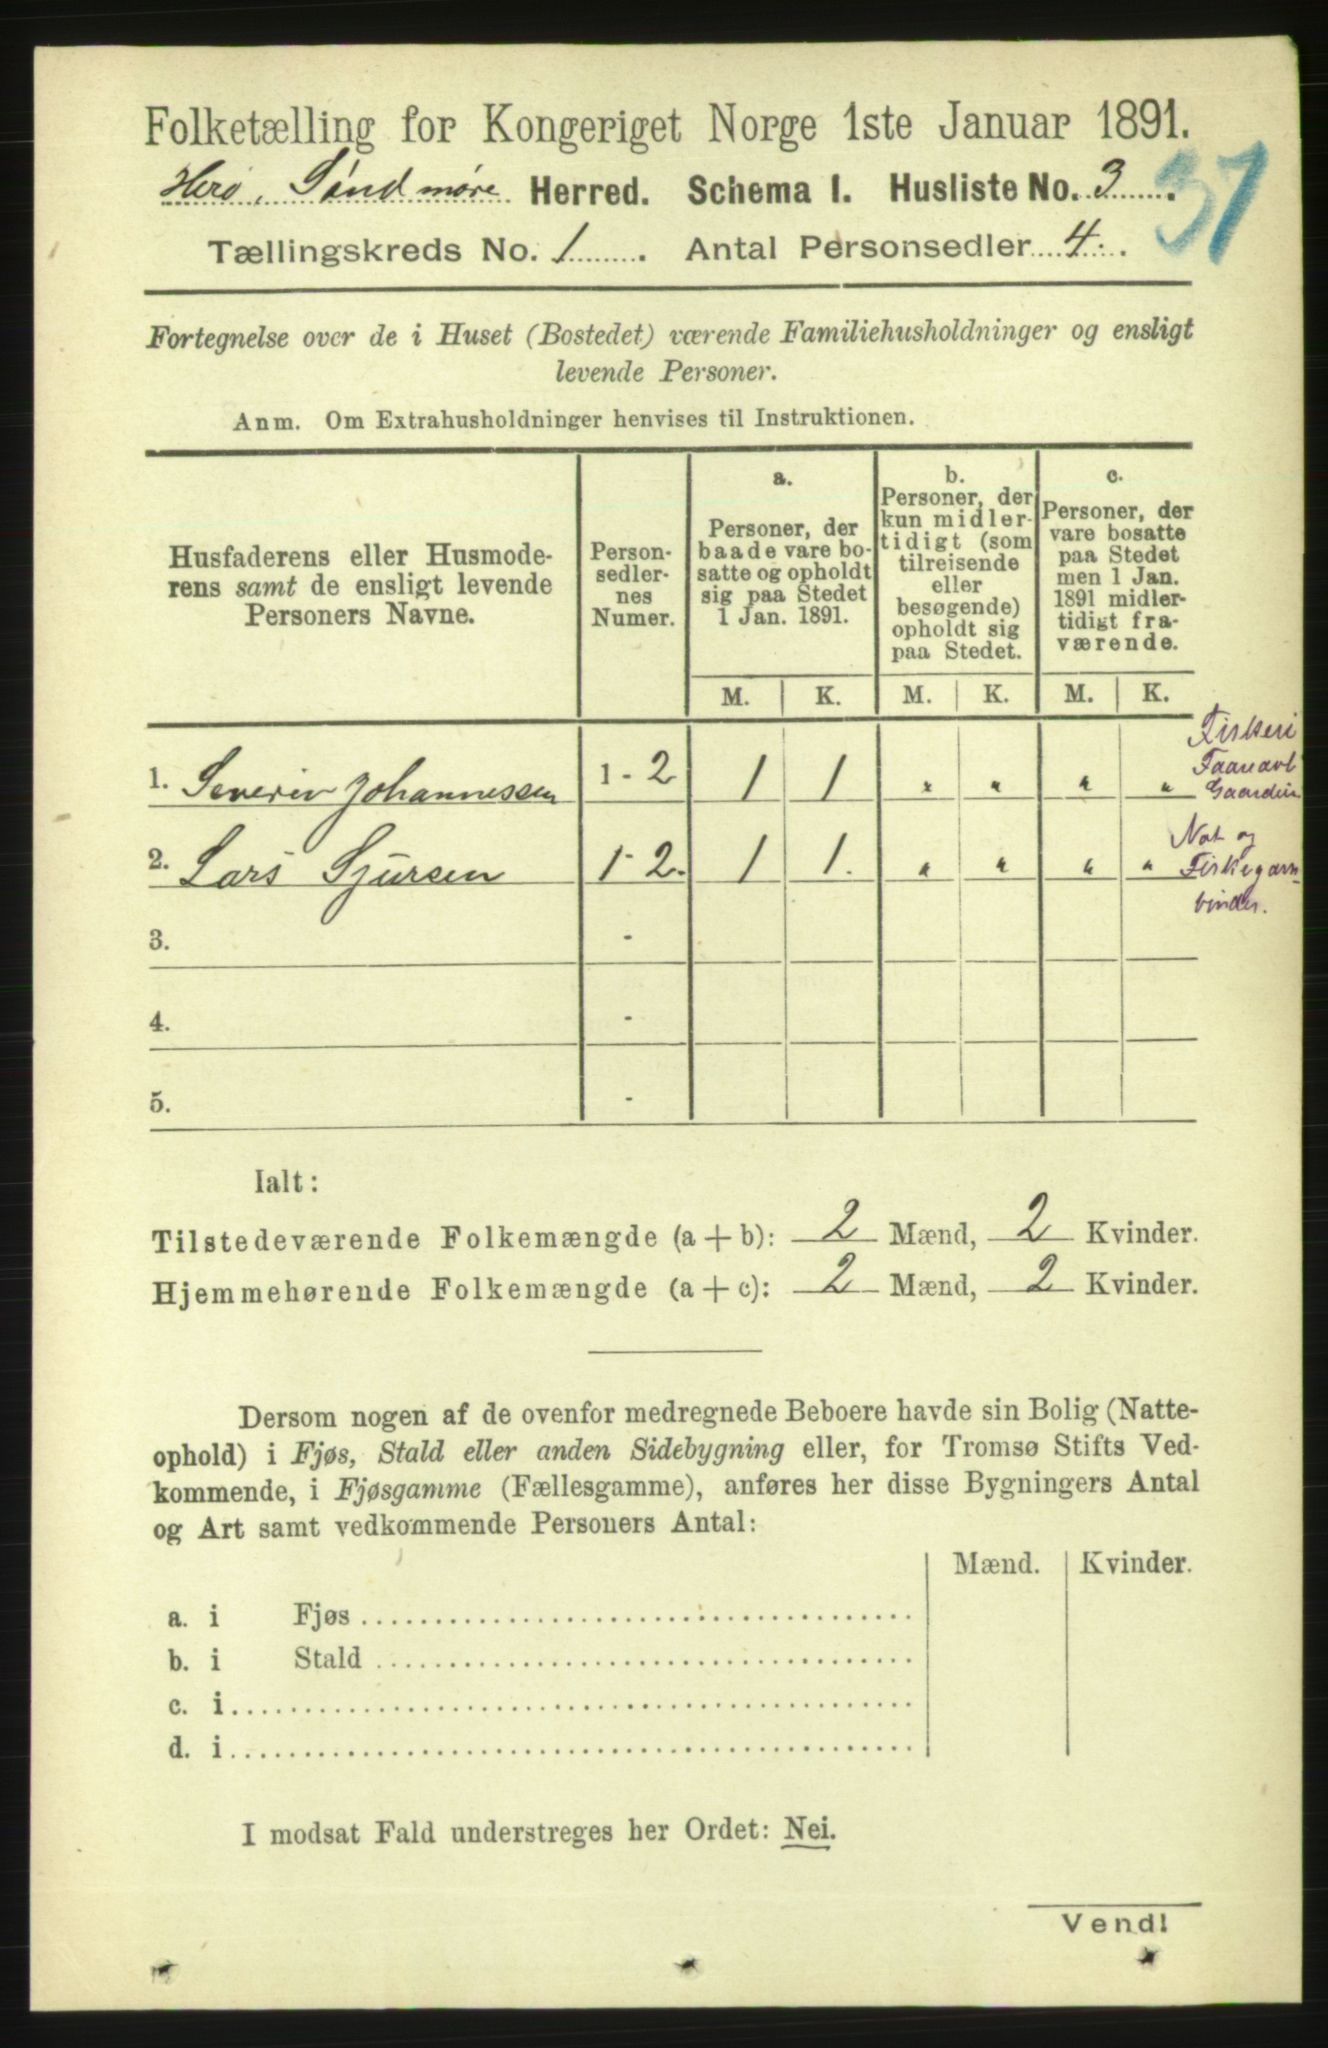 Folketælling for Kongeriget Norge 1ste Januar 1891.
Herø, Søndmøre Herred. Schema I. Husliste No. 3.
37
Tællingskreds No. 1. Antal Personsedler 4.
Fortegnelse over de i Huset (Bostedet) værende Familiehusholdninger og ensligt
levende Personer.
Anm. Om Extrahusholdninger henvises til Instruktionen.
Husfaderens eller Husmode-
rens samt de ensligt levende
Personers Navne.
Person-
sedler-
nes
Numer.
a.
Personer, der
baade vare bo-
satte og opholdt
sig paa Stedet
1 Jan. 1891.
b.
Personer, der
kun midler-
tidigt (som
tilreisende
eller
besøgende)
opholdt sig
paa Stedet.
c.
Personer, der
vare bosatte
paa Stedet
men 1 Jan.
1891 midler-
tidigt fra-
værende.
M. K. M. K. M. K.
1. Severin Johannessen 1 - 2 1 1 " " " "
Fiskeri
2. Lars Sjursen 1 - 2. 1 1. " " " "
Not og
Fiskegarn
binder.
3. -
4. -
5. -
Ialt:
Tilstedeværende Folkemængde (a + b): 2 Mænd, 2 Kvinder.
Hjemmehørende Folkemængde (a + c): 2 Mænd, 2 Kvinder.
Dersom nogen af de ovenfor medregnede Beboere havde sin Bolig (Natte-
ophold) i Fjøs, Stald eller anden Sidebygning eller, for Tromsø Stifts Ved-
kommende, i Fjøsgamme (Fællesgamme), anføres her disse Bygningers Antal
og Art samt vedkommende Personers Antal:
Mænd. Kvinder.
a. i Fjøs
b. i Stald
c. i
d. i
I modsat Fald understreges her Ordet: Nei.
Vend!